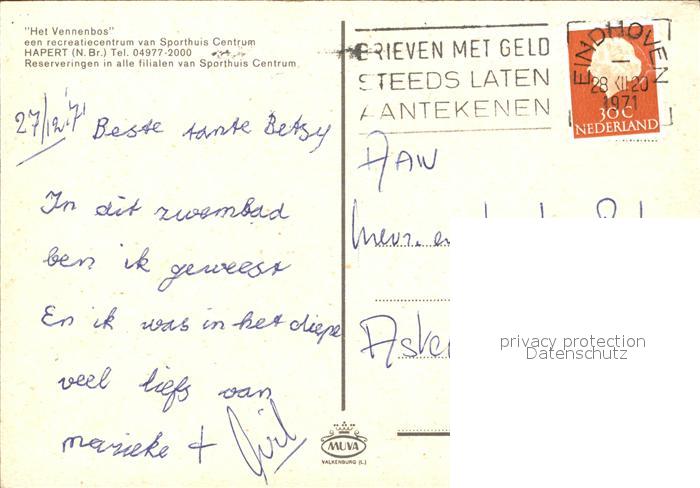 "Het Vennenbos"
een recreatiecentrum van Sporthuis Centrum
HAPERT (N. Br.) Tel. 04977-2000
Reserveringen in alle filialen van Sporthuis Centrum
27/12 '71 Beste tante Betsy
In dit zwembad
ben ik geweest
En ik was in het diepe
veel liefs van
marieke +
BRIEVEN MET GELD
STEEDS LATEN
AANTEKENEN
EINDHOVEN
28 XII 20
1971
30 C
NEDERLAND
AAN
Mevr. en
privacy protection
Datenschutz
MUVA
VALKENBURG (L.)